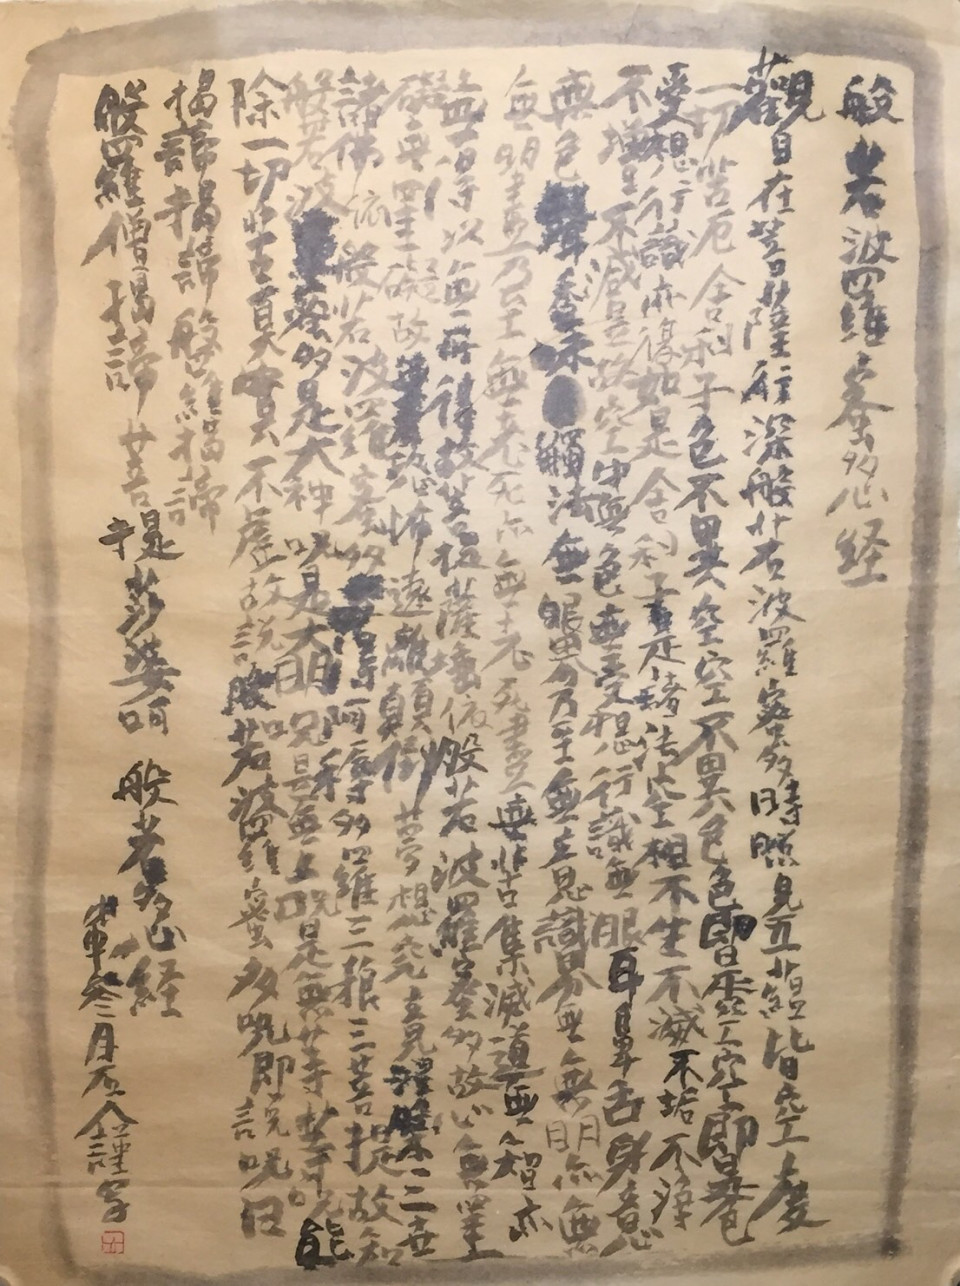 般若波羅蜜多心経
観自在菩薩行深般若波羅蜜多時照見五蘊皆空度
一切苦厄舎利子色不異空空不異色色即是空空即是色
受想行識亦復如是舎利子是諸法空相不生不滅不垢不浄
不増不減是故空中無色無受想行識無眼耳鼻舌身意
無色声香味触法無眼界乃至無意識界無無明亦無
無明尽乃至無老死亦無老死尽無苦集滅道無智亦
無得以無所得故菩提薩埵依般若波羅蜜多故心無罣
礙無罣礙故無有恐怖遠離顛倒夢想究竟涅槃三世
諸佛依般若波羅蜜多故得阿耨多羅三藐三菩提故知
般若波羅蜜多是大神呪是大明呪是無上呪是無等等呪能
除一切苦真実不虚故説般若波羅蜜多呪即説呪曰
揭諦揭諦般羅揭諦
般羅僧揭諦菩提娑婆訶 般若心経
月 謹写